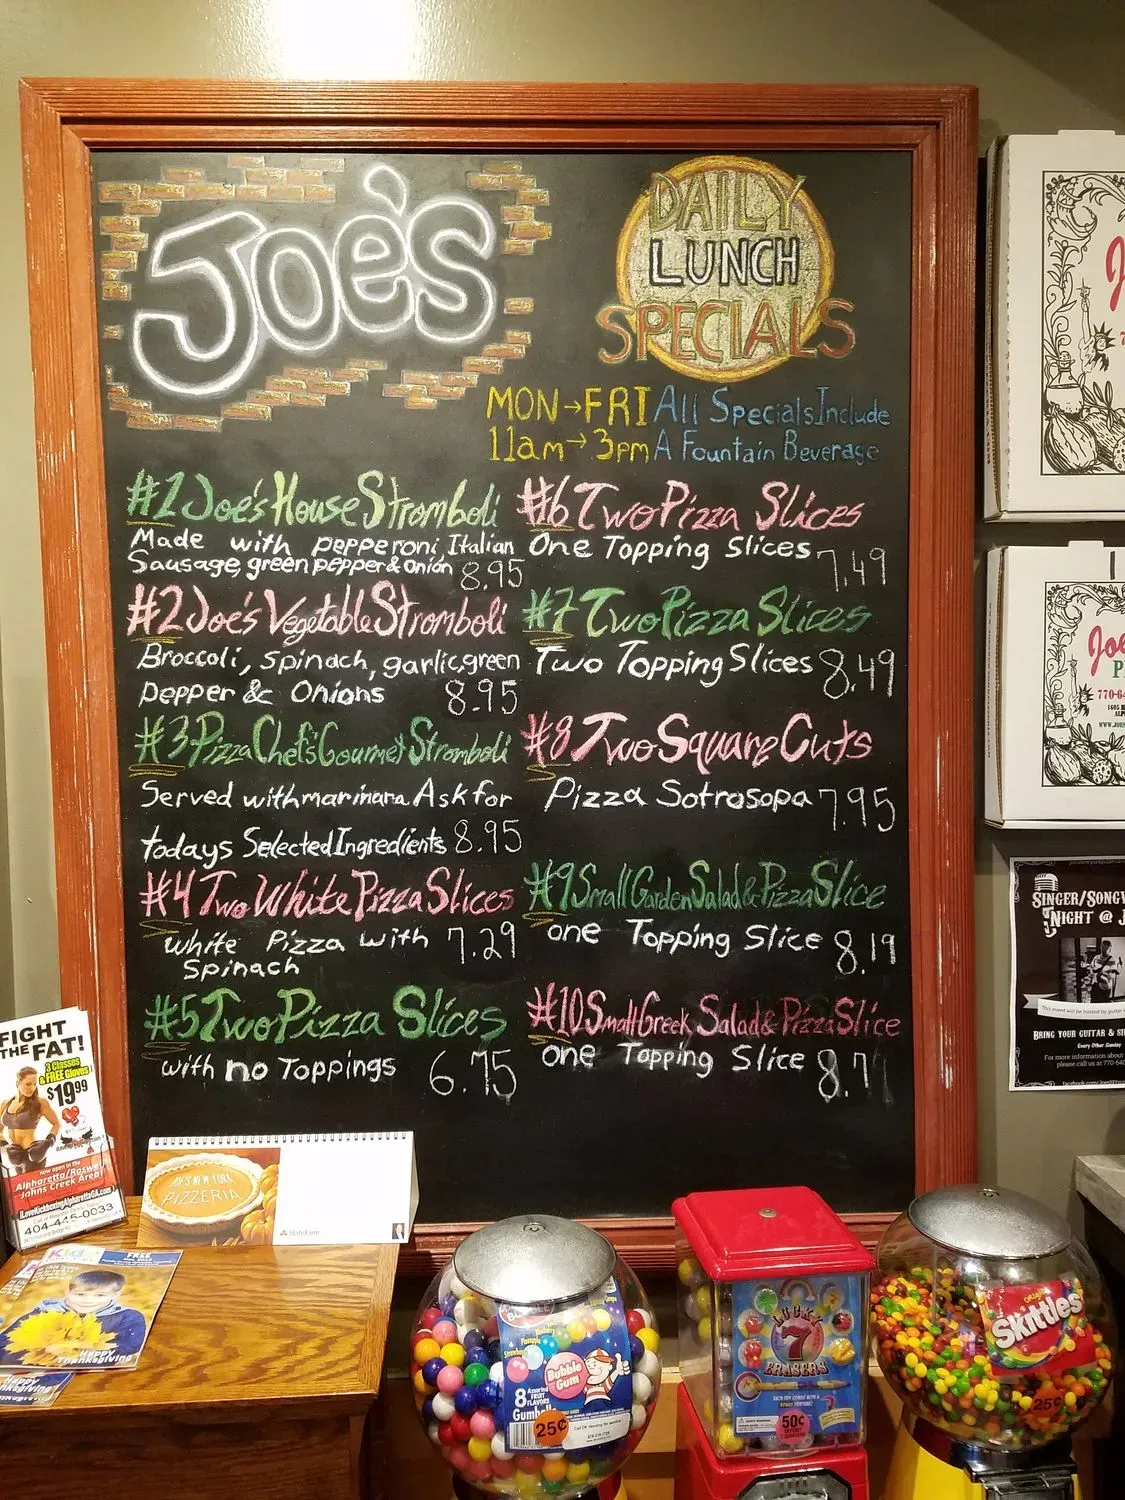 Joe's
DAILY
LUNCH
SPECIALS
MON→FRI All Specials Include
11am→3pm A Fountain Beverage
#1 Joe's House Stromboli
Made with pepperoni, Italian
Sausage, green pepper & onion 8.95
#2 Joe's Vegetable Stromboli
Broccoli, Spinach, garlic, green
pepper & Onions 8.95
#3 Pizza Chef's Gourmet Stromboli
Served with marinara Ask for
todays Selected Ingredients 8.95
#4 Two White Pizza Slices
white Pizza with 7.29
Spinach
#5 Two Pizza Slices
with no Toppings 6.75
#6 Two Pizza Slices
One Topping Slices 7.49
#7 Two Pizza Slices
Two Topping Slices 8.49
#8 Two Square Cuts
Pizza Sotrosopa 7.95
#9 Small Garden Salad & Pizza Slice
one Topping Slice 8.19
#10 Small Greek Salad & Pizza Slice
one Topping Slice 8.7
Joe
P
770-6
SINGER/SONGW
NIGHT @ J
This event will be hosted by guitar
BRING YOUR GUITAR & SI
Every Other Sunday
For more information about
please call us at 770-640
FIGHT
THE FAT!
3 Classes
& FREE Gloves
$19.99
now open in the
Alpharetta/Roswell
Johns Creek Area!
iLoveKickboxingAlpharettaGA.com
404-445-0033
NEW YORK
PIZZERIA
StateFarm
Kids
FREE
Happy
Thanksgiving
Bubble
Gum
8 Assorted
FRUIT
FLAVORS
Gumballs
25¢
LUCKY
7
ERASERS
50¢
Skittles
25¢